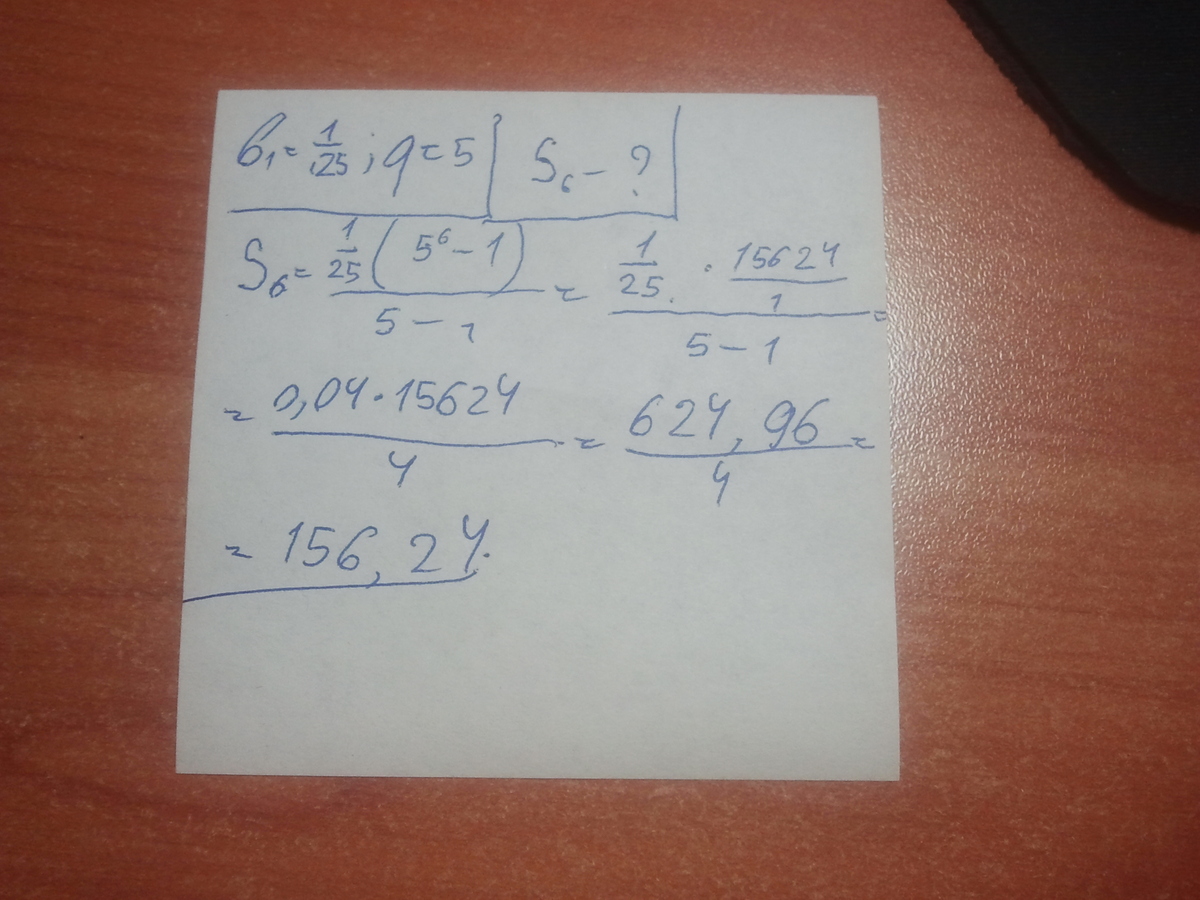 b₁ = 1/25 ; q = 5 | S₆ – ?
S₆ = (1/25 (5⁶ – 1))/(5 – 1) = (1/25 · 15624/1)/(5 – 1) =
= (0,04 · 15624)/4 = 624,96/4 =
= 156,24.